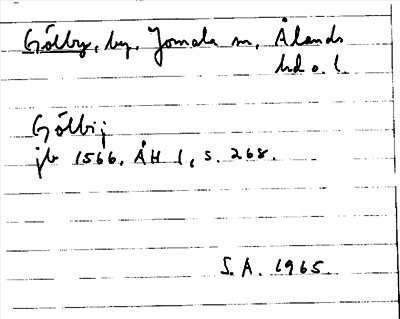 Gölby, by, Jomala sn, Ålands
hd o. l.
Gölbij
jb 1566. ÅH 1, s. 268.
S.A. 1965